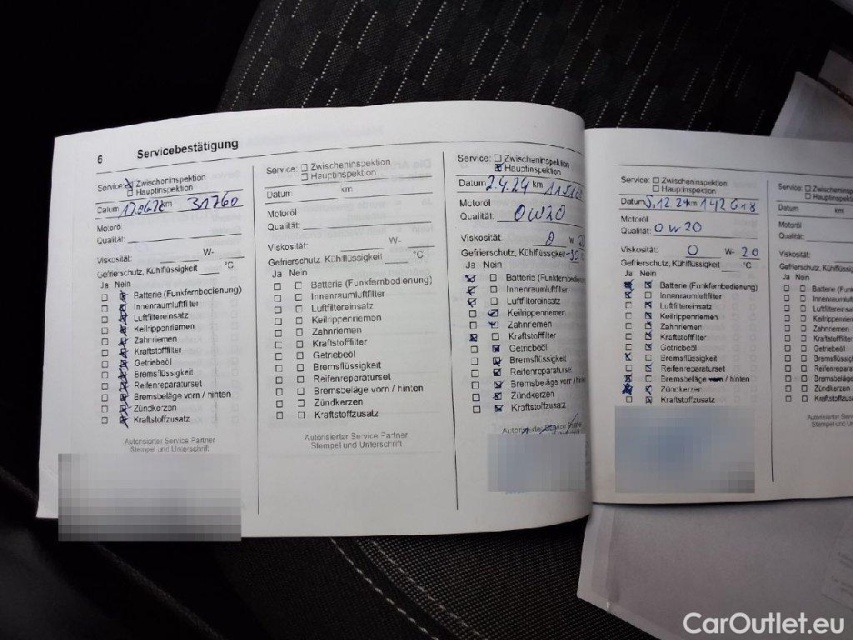 6 Servicebestätigung
Service: Zwischeninspektion
Hauptinspektion
Datum km 31760
Motoröl
Qualität:
Viskosität: W-
Gefrierschutz, Kühlflüssigkeit °C
Ja Nein
Batterie (Funkfernbedienung)
Innenraumluftfilter
Luftfiltereinsatz
Keilrippenriemen
Zahnriemen
Kraftstofffilter
Getriebeöl
Bremsflüssigkeit
Reifenreparaturset
Bremsbeläge vorn / hinten
Zündkerzen
Kraftstoffzusatz
Autorisierter Service Partner
Stempel und Unterschrift
Service: Zwischeninspektion
Hauptinspektion
Datum km
Motoröl
Qualität:
Viskosität: W-
Gefrierschutz, Kühlflüssigkeit °C
Ja Nein
Batterie (Funkfernbedienung)
Innenraumluftfilter
Luftfiltereinsatz
Keilrippenriemen
Zahnriemen
Kraftstofffilter
Getriebeöl
Bremsflüssigkeit
Reifenreparaturset
Bremsbeläge vorn / hinten
Zündkerzen
Kraftstoffzusatz
Autorisierter Service Partner
Stempel und Unterschrift
Service: Zwischeninspektion
Hauptinspektion
Datum 2.4.24 km
Motoröl
Qualität: 0W20
Viskosität: 0 W
Gefrierschutz, Kühlflüssigkeit
Ja Nein
Batterie (Funkfernbedienung
Innenraumluftfilter
Luftfiltereinsatz
Keilrippenriemen
Zahnriemen
Kraftstofffilter
Getriebeöl
Bremsflüssigkeit
Reifenreparaturset
Bremsbeläge vorn / hinten
Zündkerzen
Kraftstoffzusatz
Service: Zwischeninspektion
Hauptinspektion
Datum 5.12.24 km 142618
Motoröl
Qualität: 0W20
Viskosität: 0 W- 20
Gefrierschutz, Kühlflüssigkeit °C
Ja Nein
Batterie (Funkfernbedienung)
Innenraumluftfilter
Luftfiltereinsatz
Keilrippenriemen
Zahnriemen
Kraftstofffilter
Getriebeöl
Bremsflüssigkeit
Reifenreparaturset
Bremsbeläge vorn / hinten
Zündkerzen
Kraftstoffzusatz
Service: Zwischen
Hauptins
Datum
Motoröl
Qualität:
Viskosität:
Gefrierschutz, Kühlflüssigke
Ja Nein
Batterie (Funk
Innenraumluft
Luftfiltereinsa
Keilrippenrie
Zahnriemen
Kraftstofffilte
Getriebeöl
Bremsflüssig
Reifenrepara
Bremsbeläg
Zündkerzen
Kraftstoffzu
CarOutlet.eu